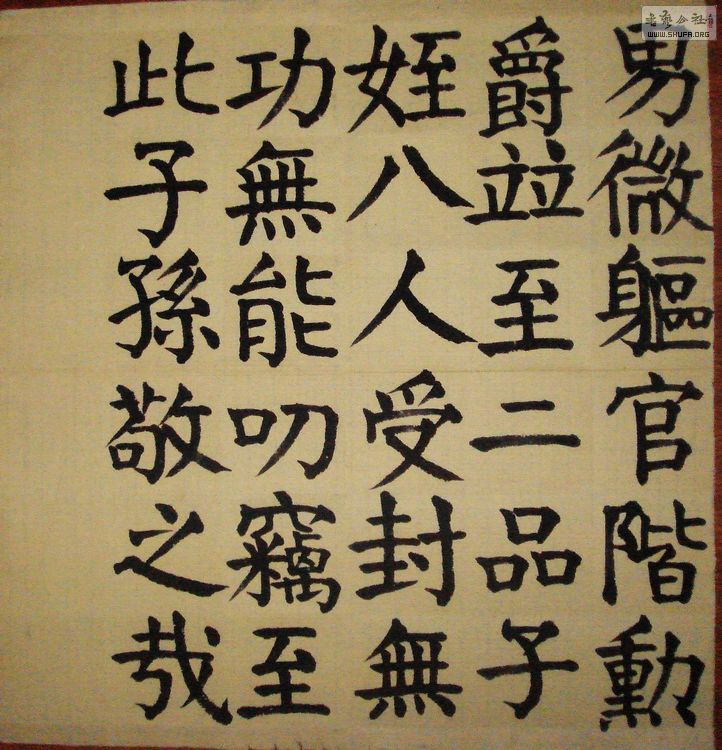 男微軀官階勳
爵竝至二品子
姪八人受封無
功無能叨竊至
此子孫敬之哉
书艺公社
WWW.SHUFA.ORG